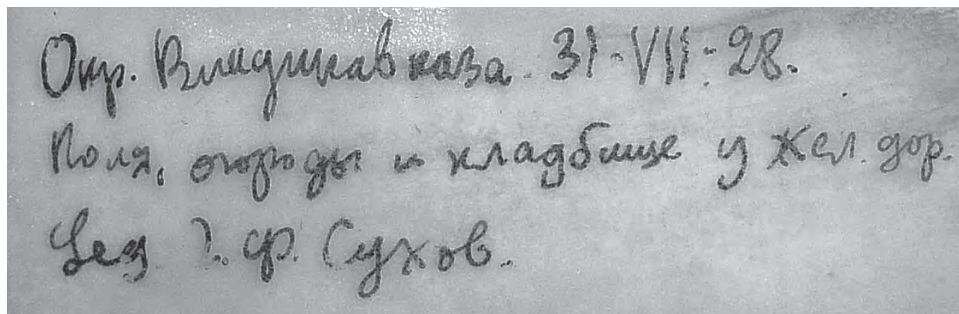 Окр. Владикавказа. 31-VII-28.
Поля, огороды и кладбище у жел. дор.
Leg. Г. Ф. Сухов.